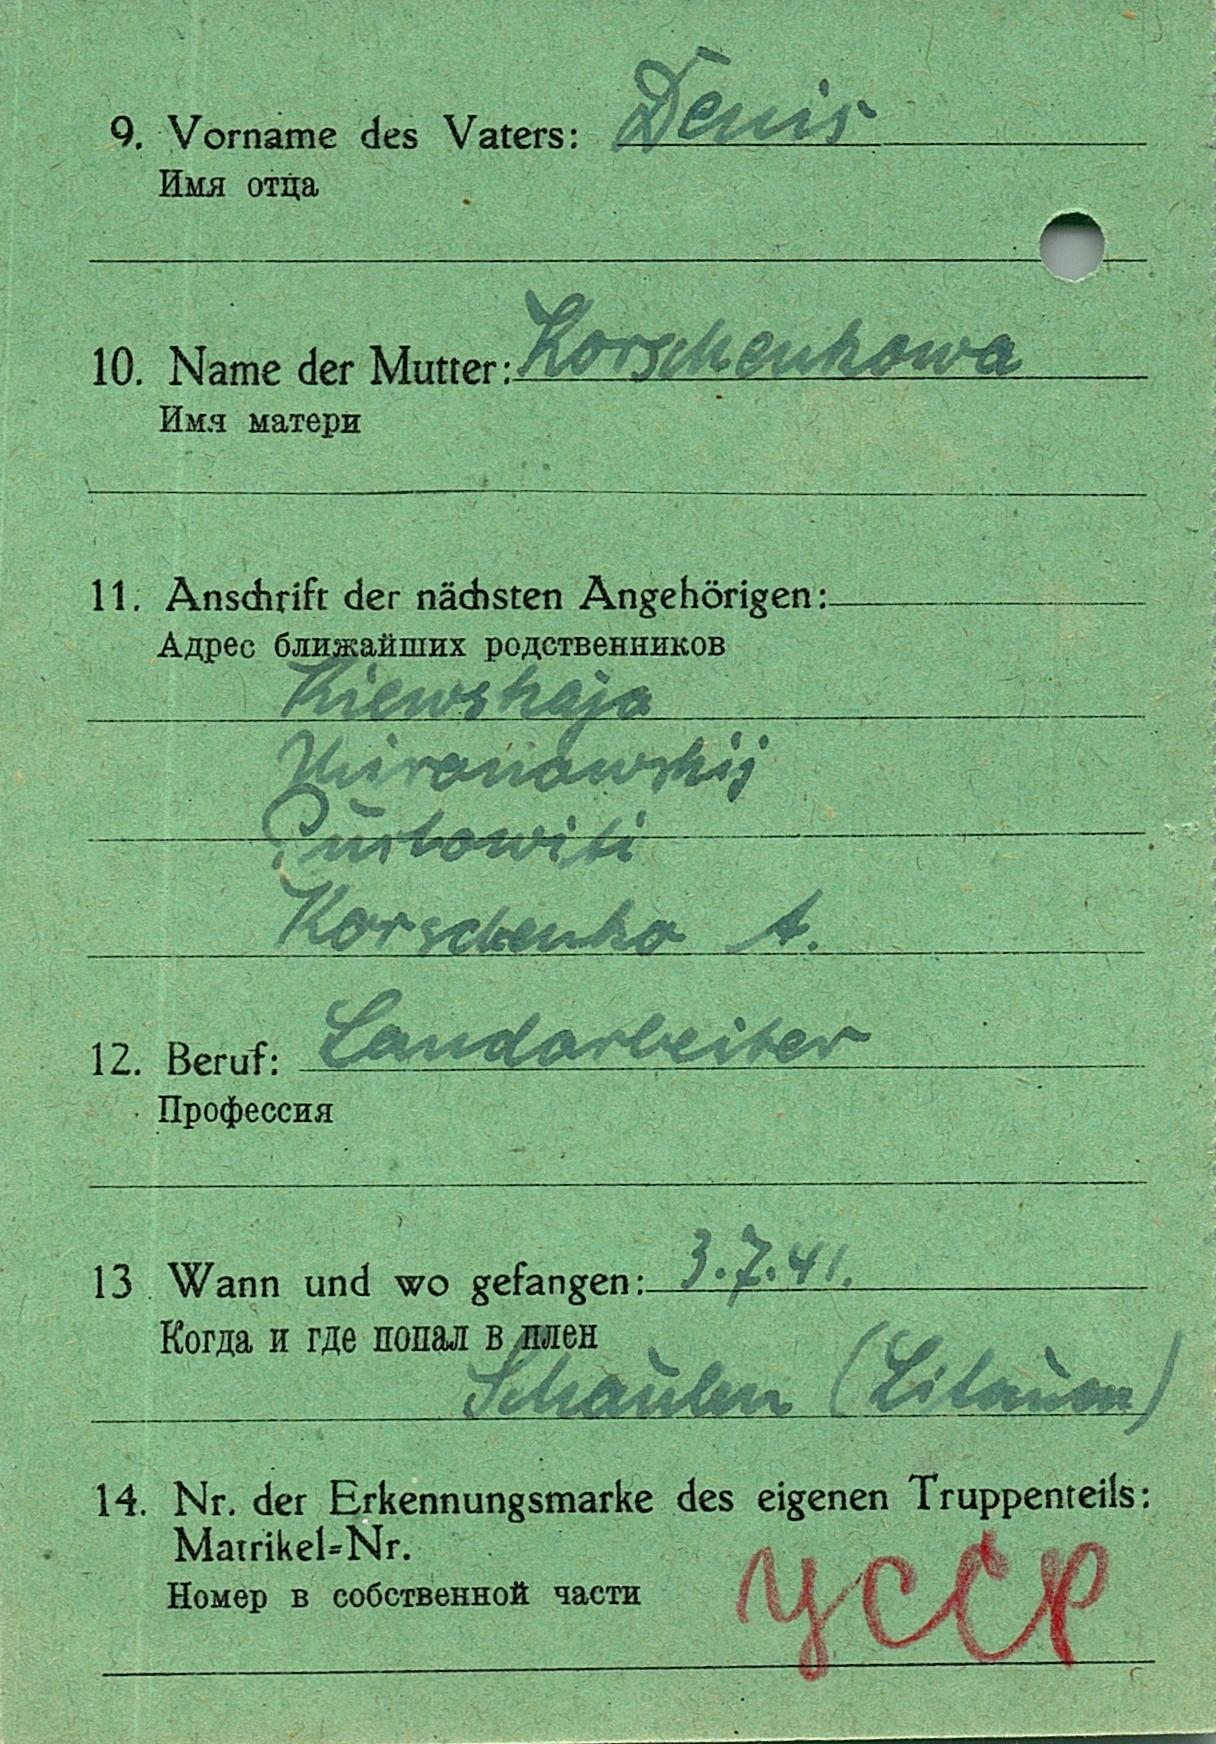 9. Vorname des Vaters: Denis
Имя отца
10. Name der Mutter: Korschenkowa
Имя матери
11. Anschrift der nächsten Angehörigen:
Адрес ближайших родственников
Kiewskaja
Mironowskij
Pustowiti
Korschenko A.
12. Beruf: Landarbeiter
Профессия
13. Wann und wo gefangen: 3.7.41.
Когда и где попал в плен
Schaulen (Litauen)
14. Nr. der Erkennungsmarke des eigenen Truppenteils:
Matrikel-Nr.
Номер в собственной части
УССР